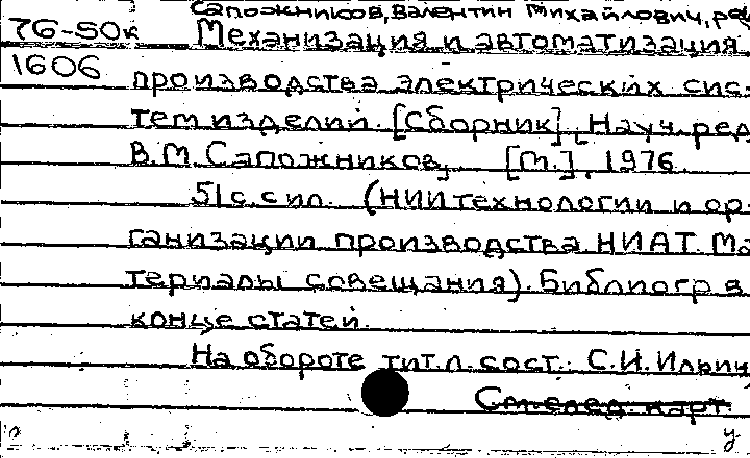 Сапожников, Валентин Михайлович, ред
76-50к Механизация и автоматизация
1606 производства электрических сис-
тем изделий. [Сборник]. [Науч. ред.
В.М. Сапожников]. [М.], 1976.
51 с. с ил. (НИИ технологии и ор-
ганизации производства НИАТ. Ма-
териалы совещания). Библиогр в
конце статей.
На обороте тит. л. сост.: С.И. Ильич
См. след. карт
у